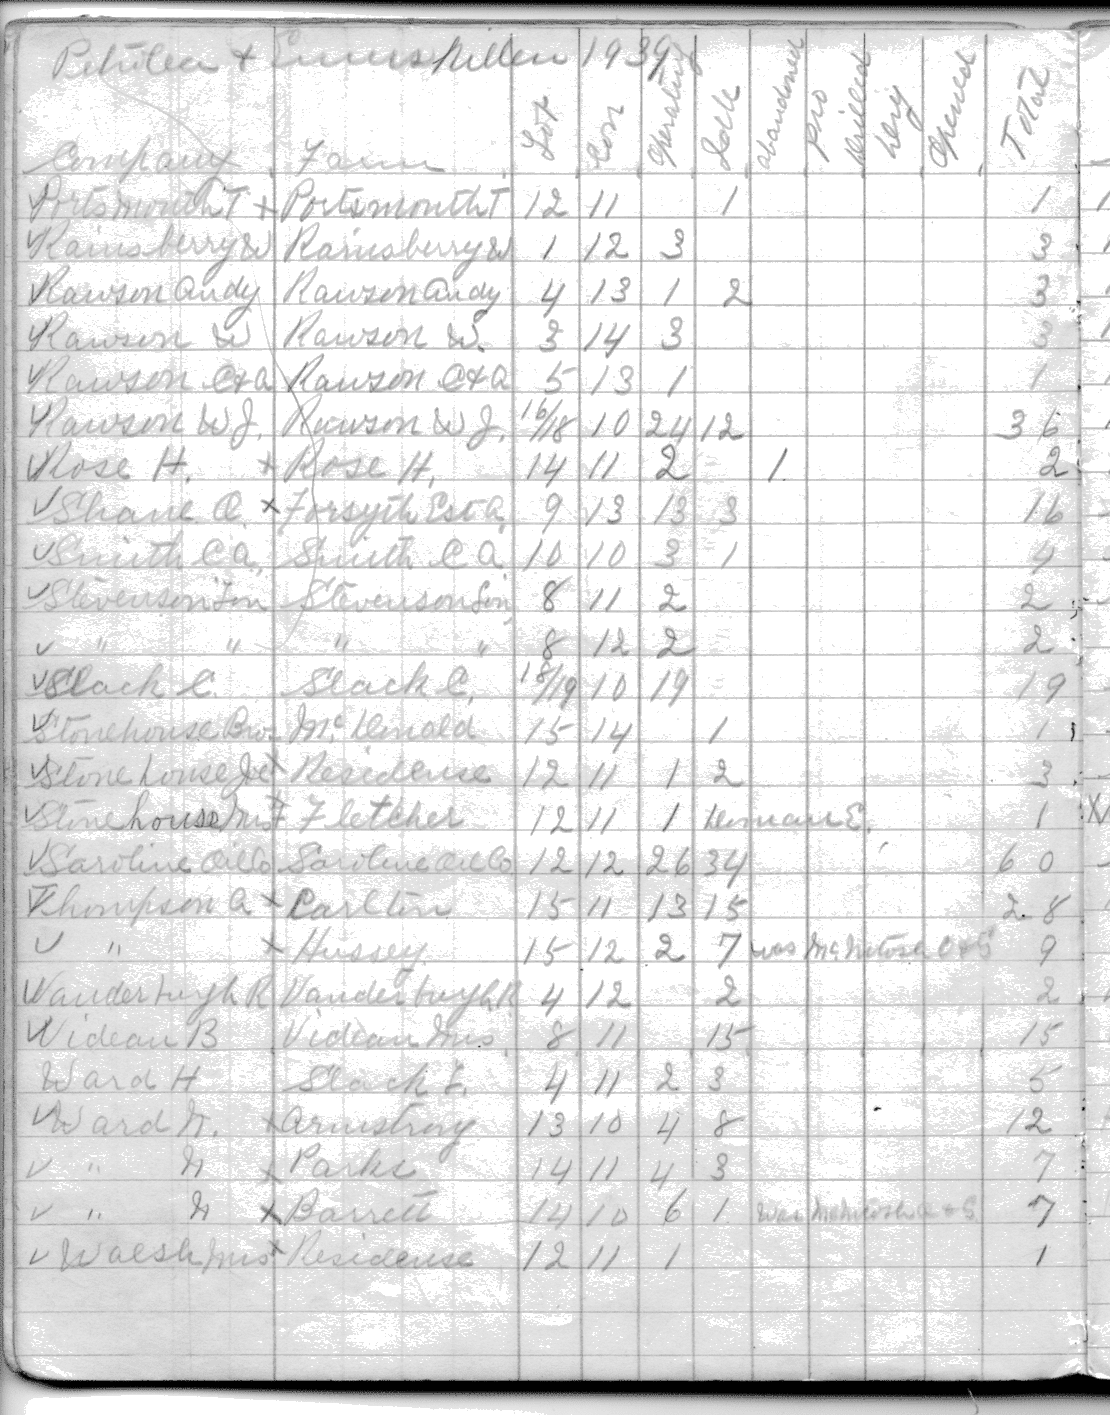 Petrolea + Enniskillen 1939
Company Farm Lot Con Operating Idle Abandoned Pro Drilled Dry Opened Total
Portsmouth T x Portsmouth T 12 11 1 1
✓ Rainsberry W Rainsberry W 1 12 3 3
✓ Rawson Andy Rawson Andy 4 13 1 2 3
✓ Rawson W Rawson W. 3 14 3 3
✓ Rawson C+A Rawson C+A 5 13 1 1
✓ Rawson W J. Rawson W J. 16/18 10 24 12 36
✓ Rose H. x Rose H. 14 11 2 1. 2
✓ Shane O. x Forsyth Est A. 9 13 13 3 16
✓ Smith C A. Smith C A 10 10 3 1 4
✓ Stevenson Stevenson 8 11 2 2
✓ " " " " 8 12 2 2
✓ Slack C. Slack C. 18/19 10 19 19
✓ Stonehouse Bros McDonald 15 14 1 1
✓ Stonehouse x Residense 12 11 1 2 3
✓ Stonehouse Mrs F Fletcher 12 11 1 E. 1
✓ Saroline Oil Co Saroline Oil Co 12 12 26 34 60
✓ Thompson A x Carlton 15 11 13 15 28
✓ " x Hussey. 15 12 2 7 was McIntosh 9
Vanderburgh R Vanderburgh R. 4 12 2 2
✓ Videan B Videan Mrs. 8 11 15 15
Ward H Slack F. 4 11 2 3 5
✓ Ward N. x Armstrong 13 10 4 8 12
✓ " N x Parks 14 11 4 3 7
✓ " N x Barrett 14 10 6 1 was McIntosh 7
✓ Walsh Mrs x Residense 12 11 1 1